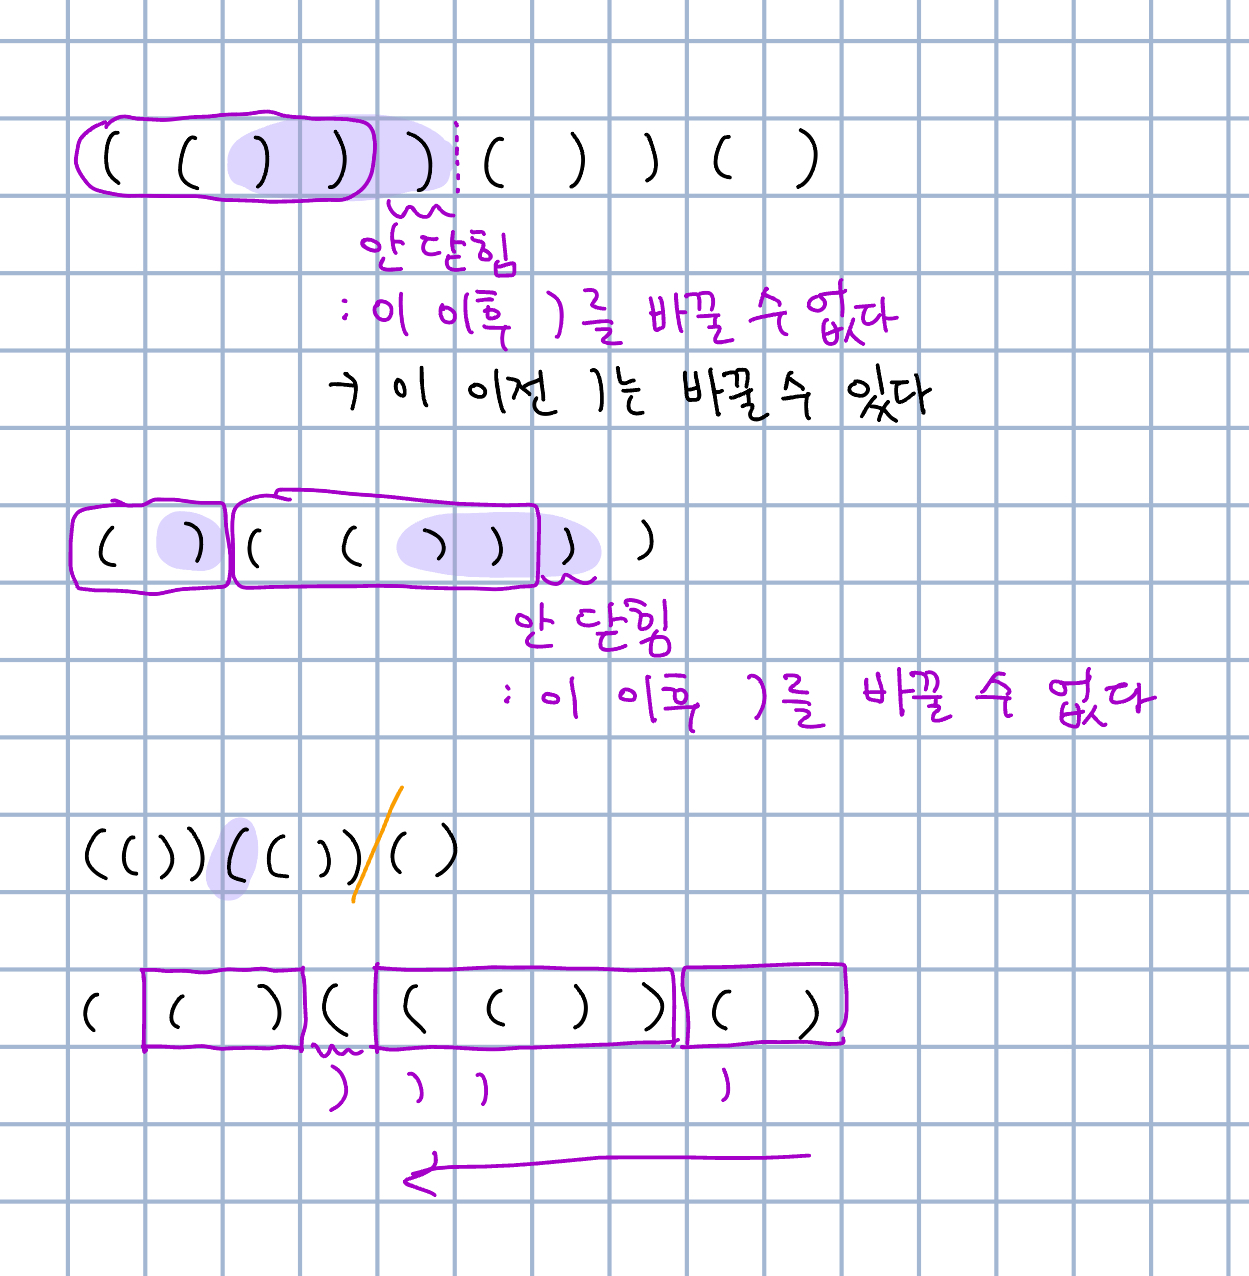 ( ( ) ) ) ( ) ) ( )
안 닫힘
: 이 이후 ) 를 바꿀 수 없다
→ 이 이전 ) 는 바꿀 수 있다
( ) ( ( ) ) ) )
안 닫힘
: 이 이후 ) 를 바꿀 수 없다
(())(())/()
( ( ) ( ( ( ) ) ( )
) ) ) )